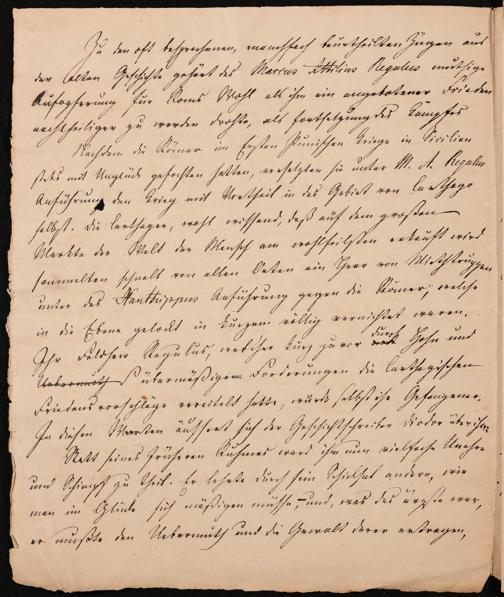 Zu den oft besprochenen, mannchfach beurtheilten Zügen aus
der alten Geschichte gehört des Marcus Attilius Regulus muthige
Aufopferung für Roms Wohl als ihm ein angebotener Frieden
nachtheiliger zu werden drohte, als Fortsetzung des Kampfes
Nachdem die Römer im Ersten Punischen Kriege in Sicilien
stets mit Unglück gefochten hatten, versetzten sie unter M. A. Regulus
Anführung den Krieg mit Vortheil in das Gebiet von Carthago
selbst. Die Carthager, wohl wissend, daß auf dem großen
Markte der Welt der Mensch am wohlfeilsten erkauft wird
sammelten schnell von allen Orten ein Heer von Miethstruppen
unter des Xanthippus Anführung gegen die Römer, welche
in die Ebene gelockt in kurzem völlig vernichtet waren.
Ihr Feldherr Regulus, welcher kurz zuvor durch Hohn und
Uebermuth übermäßigen Forderungen die Carthagischen
Friedensvorschläge vereitelt hatte, wurde selbst ihr Gefangener.
In diesen Worten äussert sich der Geschichtschreiber Diodor über ihn:
Statt seines früheren Ruhmes ward ihm nun vielfache Unehre
und Schimpf zu Theil. Er lehrte durch sein Schicksal andere, wie
man im Glücke sich mäßigen müsse, und, was das ärgste war,
er mußte den Uebermuth und die Gewalt derer ertragen,